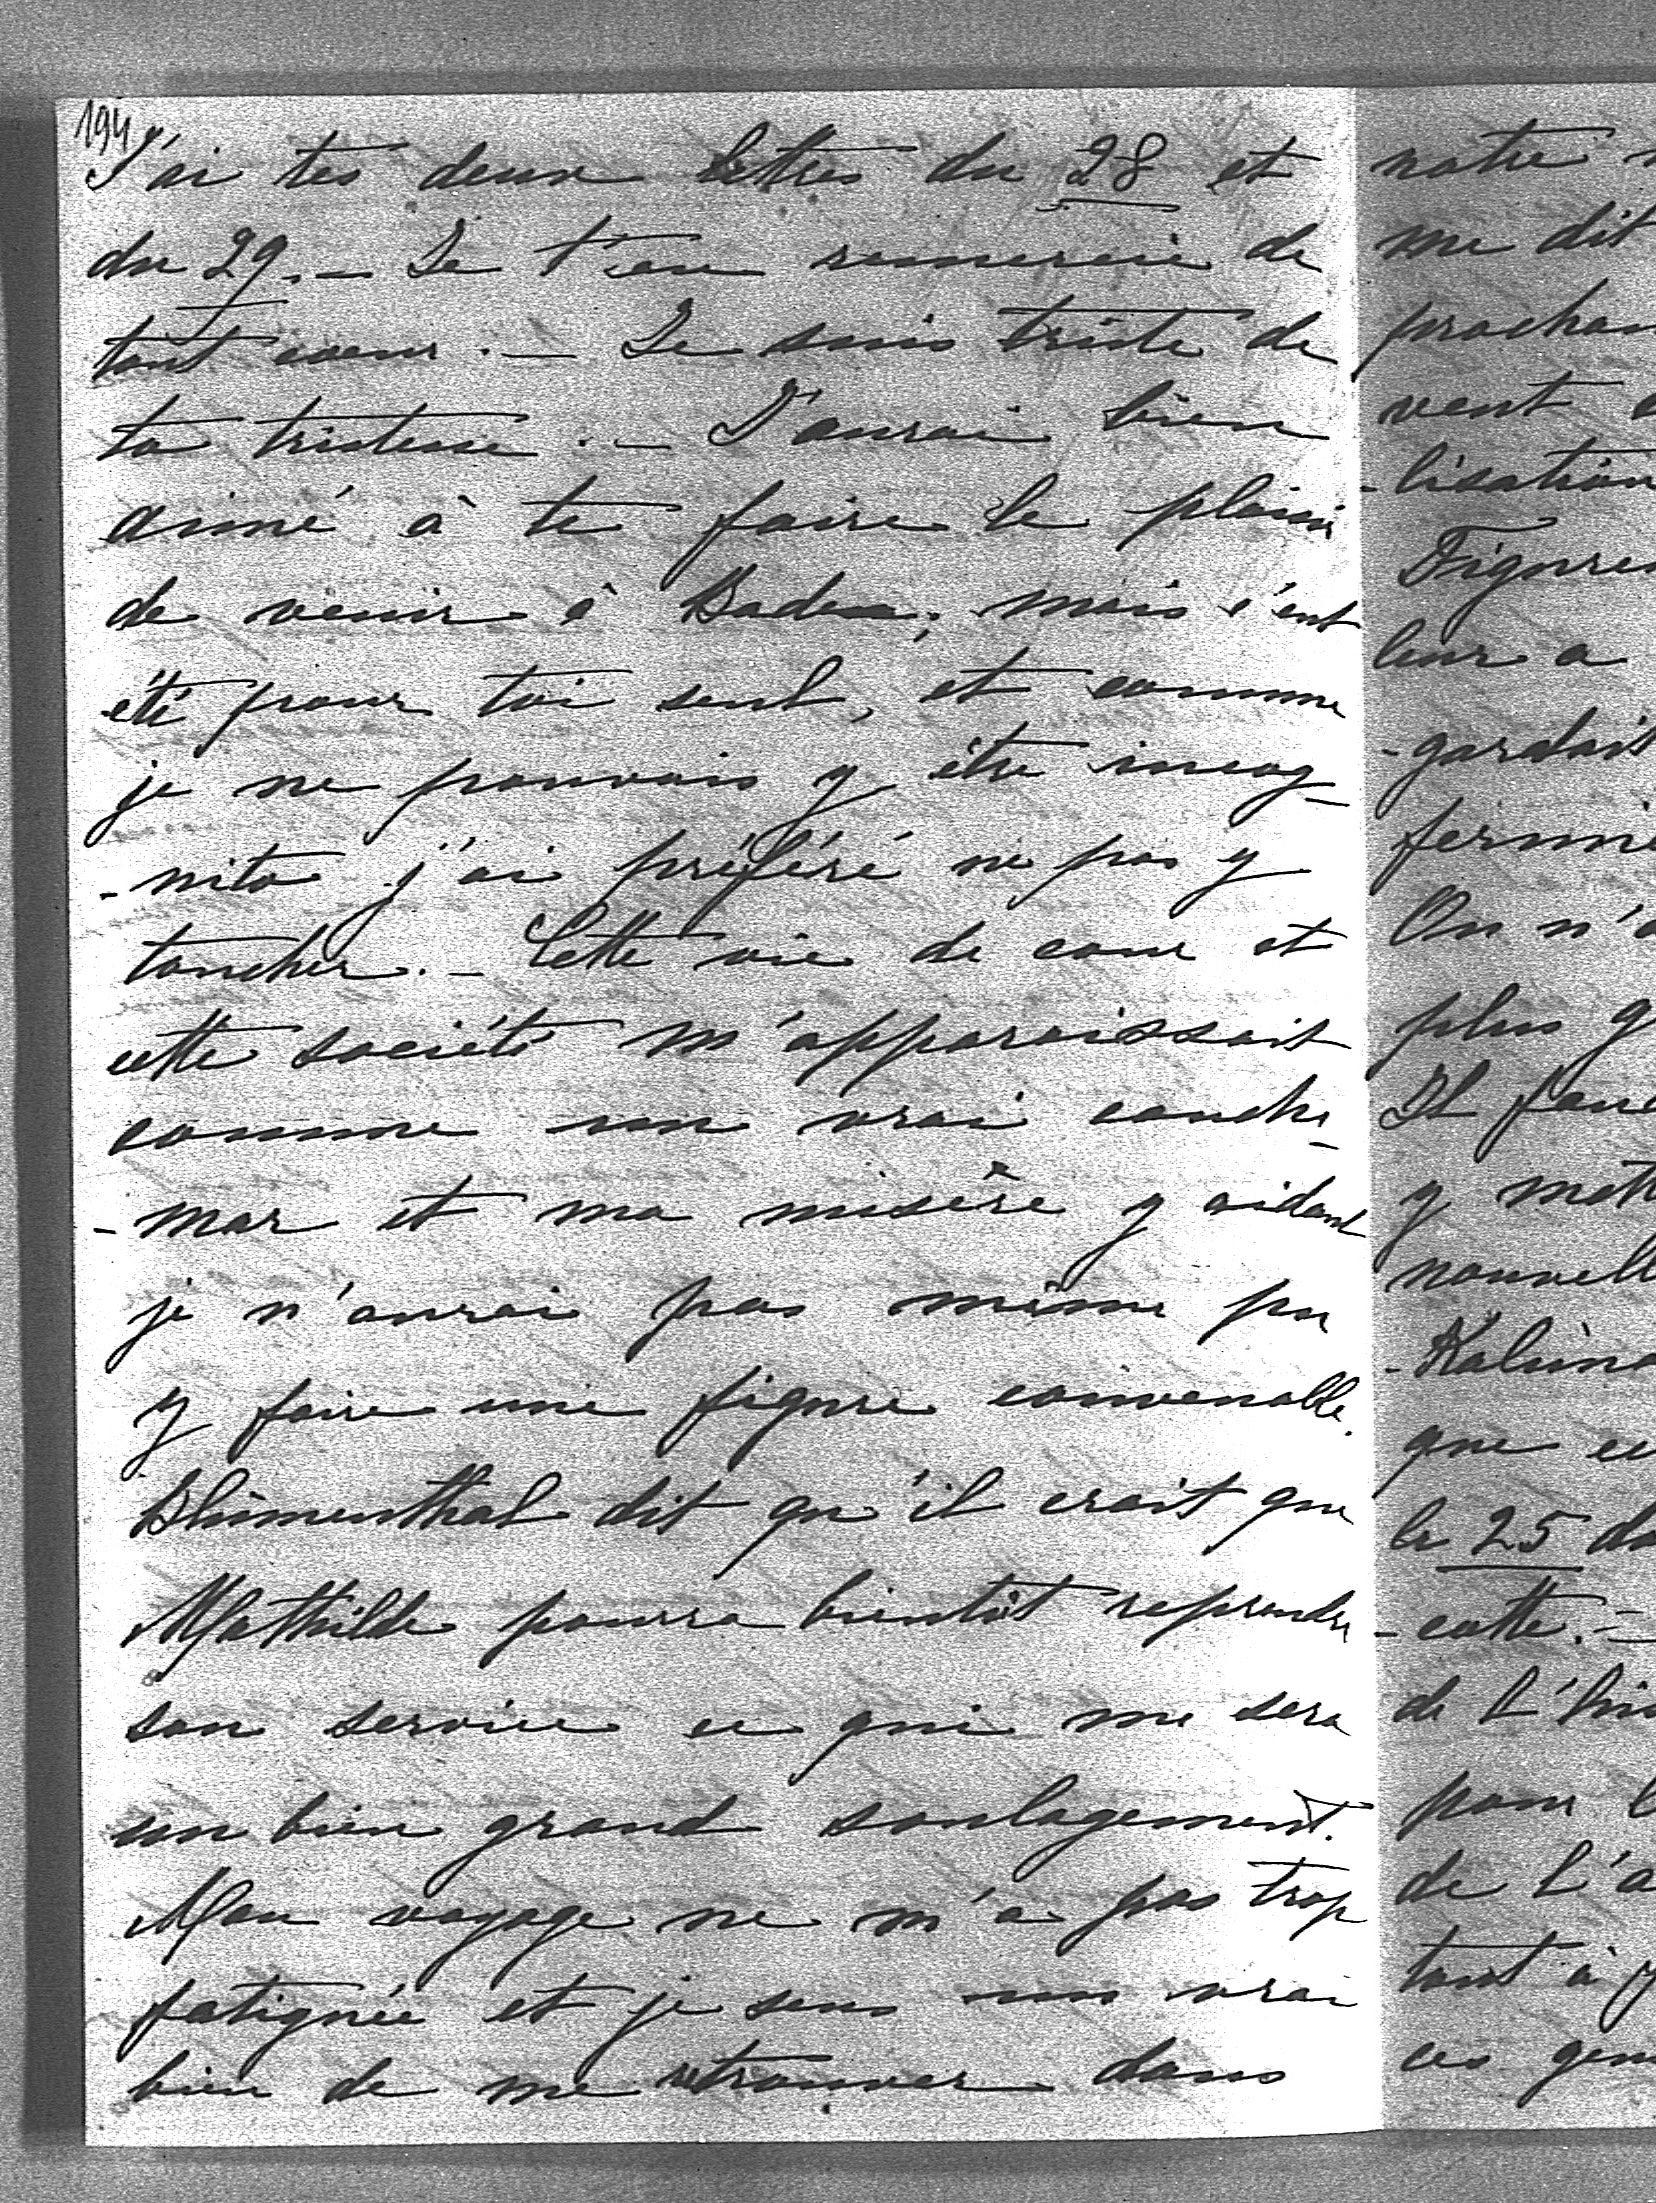 194
J'ai tes deux lettres du 28 et
du 29. – Je t'en remercie de
tout coeur. – Je suis triste de
ta tristesse. – J'aurai bien
aimé à te faire le plaisir
de venir à Baden; mais c'eut
été pour toi seul, et comme
je ne pouvais y être incog-
-nito j'ai préféré ne pas y
toucher. – Cette vie de cour et
cette société m'apparaissait
comme un vrai couche-
-mar et ma misère y aidant
je n'aurai pas même pu
y faire une figure convenable.
Blumenthal dit qu'il croit que
Mathilde pourra bientôt reprendre
son service ce qui me sera
un bien grand soulagement.
Mon voyage ne m'a pas trop
fatiguée et je sens un vrai
bien de me retrouver dans
notre
me dit
prochai
vent
-lisation
Figure
leur a
-gardait
fermi
On n'a
plus q
Il fau
y mett
nouvell
-Kalino
que ce
le 25 du
-cotte. –
de l'hi
pour l
de l'a
tout à f
ces gen